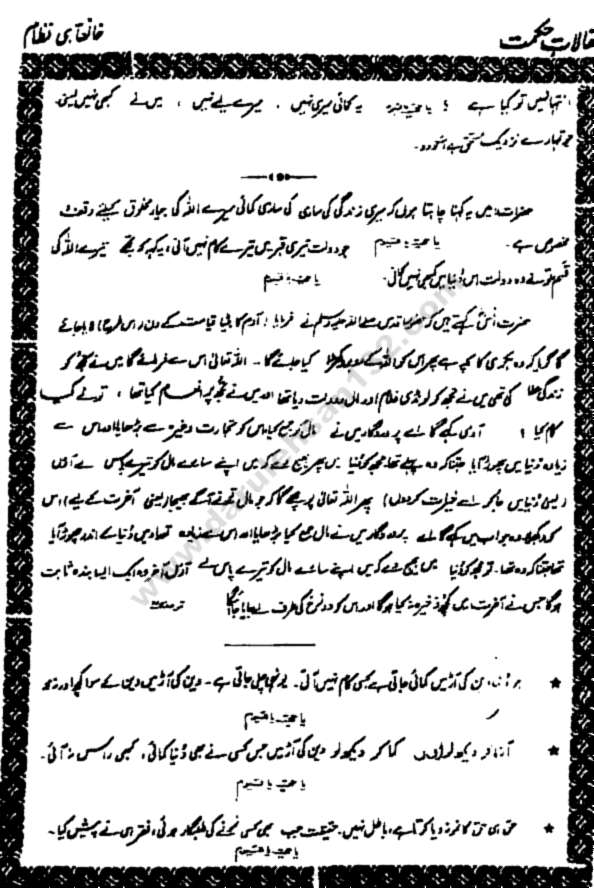 مقالات حکمت
خانقاہی نظام
انتہا نہیں تو کیا ہے ؟ یا حی یا قیوم یہ کمائی میری نہیں ، میرے لیے نہیں ، میں نے کبھی نہیں لینی۔
جو تمہارے نزدیک مستحق ہے اسے دو۔
حضرات! میں یہ کہنا چاہتا ہوں کہ میری زندگی کی ساری کی ساری کمائی میرے اللہ کی بیمار مخلوق کیلئے وقف و
مخصوص ہے۔ یا حی یا قیوم جو دولت تیری قبر میں تیرے کام نہیں آتی، یہ کہہ کہ مجھے تیرے اللہ کی
قسم تو نے وہ دولت اس دنیا میں کبھی نہیں کمائی۔ یا حی یا قیوم
حضرت انسؓ کہتے ہیں کہ حضور اقدس صلے اللہ علیہ وسلم نے فرمایا ! آدم کا بیٹا قیامت کے دن اس طرح لایا جائے
گا گویا کہ وہ بکری کا بچہ ہے پھر اس کو اللہ کے روبرو کھڑا کیا جائے گا۔ اللہ تعالیٰ اس سے فرمائے گا میں نے تجھ کو
زندگی عطا کی تھی میں نے تجھ کو لونڈی غلام اور مال و دولت دیا تھا اور میں نے تجھ پر انعام کیا تھا ، تو نے کیا
کام کیا ؟ آدمی کہے گا اے پروردگار میں نے مال کو جمع کیا اس کو تجارت وغیرہ سے بڑھایا اور اس سے
زیادہ دنیا میں چھوڑ آیا جتنا کہ وہ پہلے تھا مجھ کو دنیا میں پھر بھیج دے کہ میں اپنے سارے مال کو تیرے پاس لے آؤں
(یعنی دنیا میں جا کر اسے خیرات کر دوں) پھر اللہ تعالیٰ پوچھے گا کہ جو مال تو نے آگے بھیجا (یعنی آخرت کے لیے) اس
کو دکھا، وہ جواب میں کہے گا اے پروردگار میں نے مال جمع کیا بڑھایا اور اس سے زیادہ تعداد میں دنیا کے اندر چھوڑ آیا
تھا جتنا کہ وہ تھا۔ تو مجھ کو دنیا میں بھیج دے کہ میں اپنے سارے مال کو تیرے پاس لے آؤں آخر وہ ایک ایسا بندہ ثابت
ہوگا جس نے آخرت میں کچھ ذخیرہ نہ کیا ہوگا اور اس کو دوزخ کی طرف لے جایا جائیگا
★ ہر دین کی آڑ میں کمائی جاتی ہے کبھی کام نہیں آتی۔ یونہی چلی جاتی ہے۔ دین کی آڑ میں دین کے سوا کچھ اور نہ
یا حی یا قیوم
★ آزما کر دیکھ لو کما کر دیکھ لو دین کی آڑ میں جس کسی نے بھی دنیا کمائی ، کبھی راس نہ آئی۔
یا حی یا قیوم
★ حق ہی حق کا نمونہ دیا کرتا ہے، باطل نہیں۔ حقیقت جب بھی کسی نمونے کی طلبگار ہوئی، فقر ہی نے پیش کیا۔
یا حی یا قیوم
www.darulehsan152.com